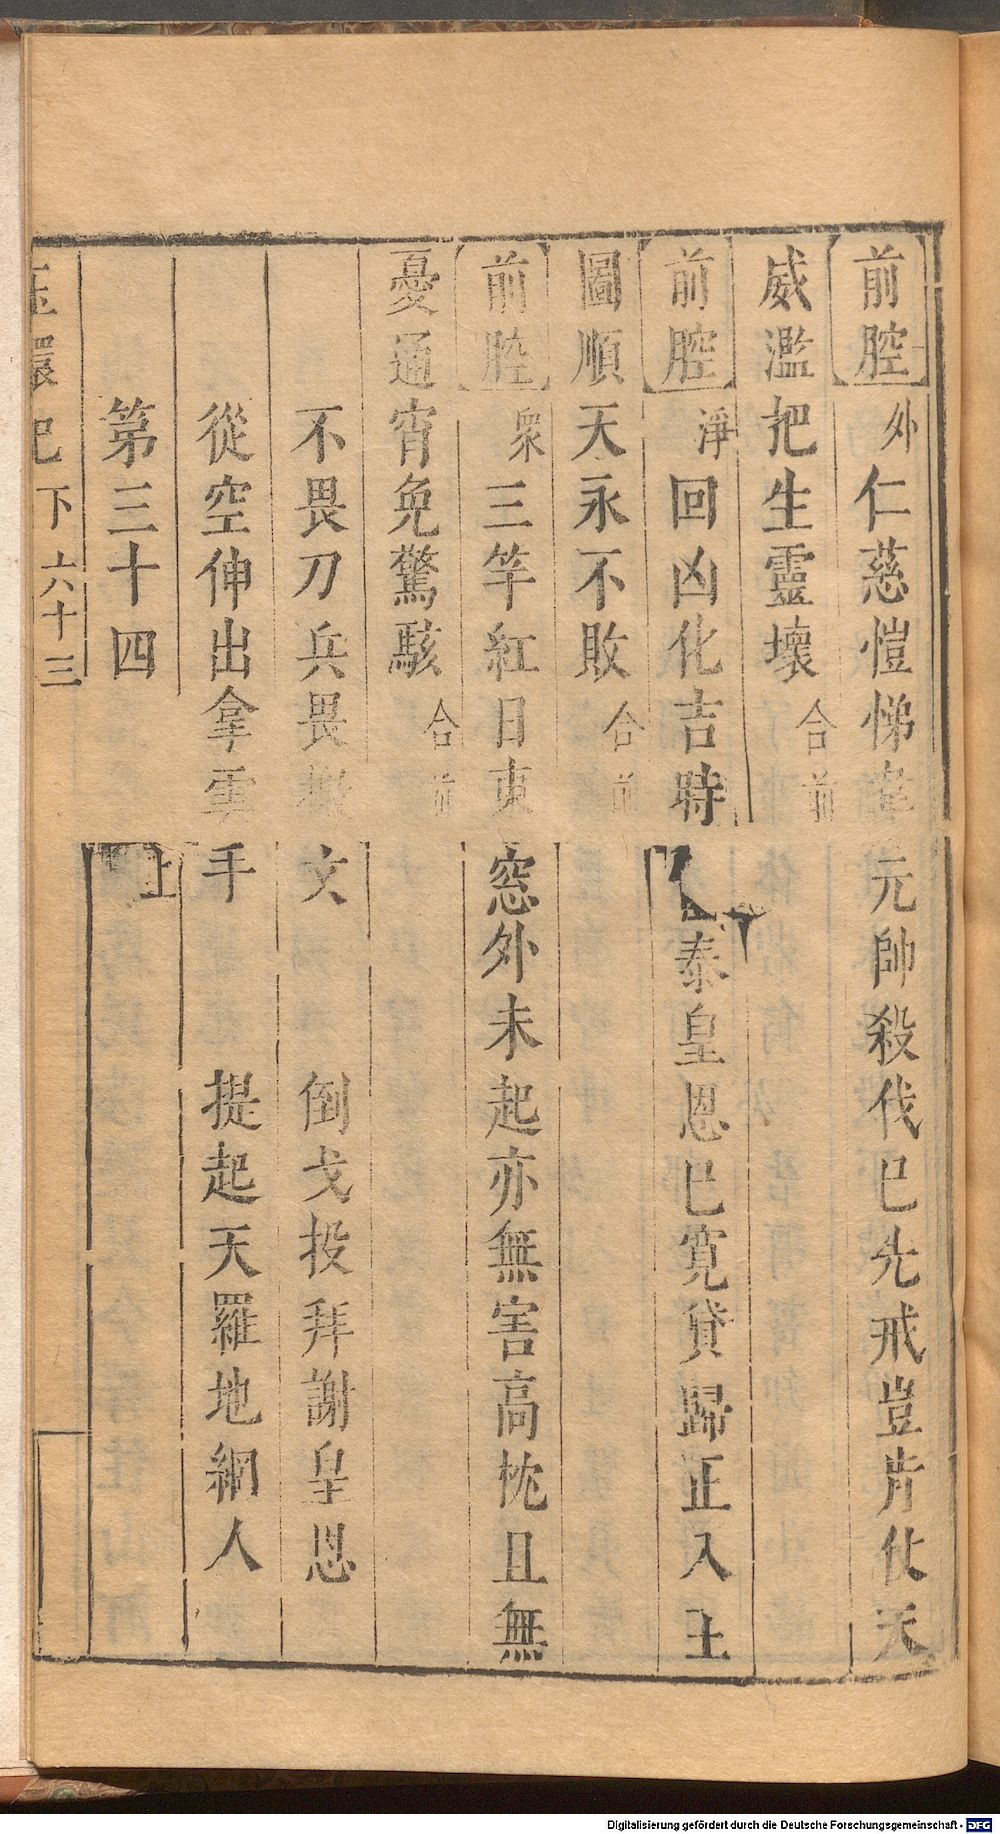 前腔 外 仁慈愷悌 元帥殺伐已先戒豈片伏天
威濫把生靈壞 合前
前腔 淨 回凶化吉時 泰皇恩已寬貸歸正入土
圖順天永不敗 合前
前腔 衆 三竿紅日東窓外未起亦無害高枕且無
憂通宵免驚駭 合前
不畏刀兵畏 文 倒戈投拜謝皇恩
從空伸出拿雲手 提起天羅地網人
第三十四 上
玉環記 下 六十三
Digitalisierung gefördert durch die Deutsche Forschungsgemeinschaft - DFG